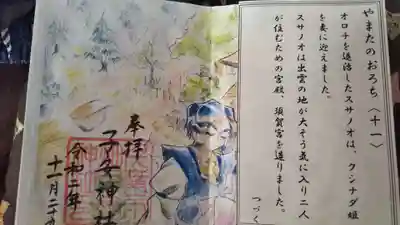 やまたのおろち〈十一〉
オロチを退治したスサノオは、クシナダ姫
を妻に迎えました。
スサノオは出雲の地が大そう気に入り二人
が住むための宮殿、須賀宮を造りました。
つづく
奉拝
子安神社
令和二年
十一月二十